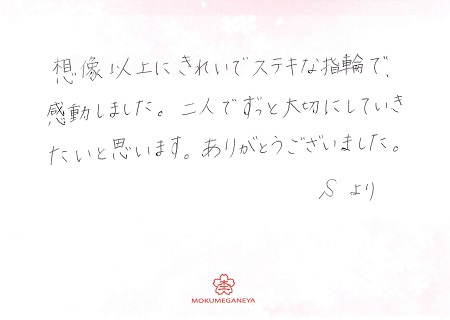 想像以上にきれいでステキな指輪で、
感動しました。二人でずっと大切にしていき
たいと思います。ありがとうございました。
Sより
MOKUMEGANEYA